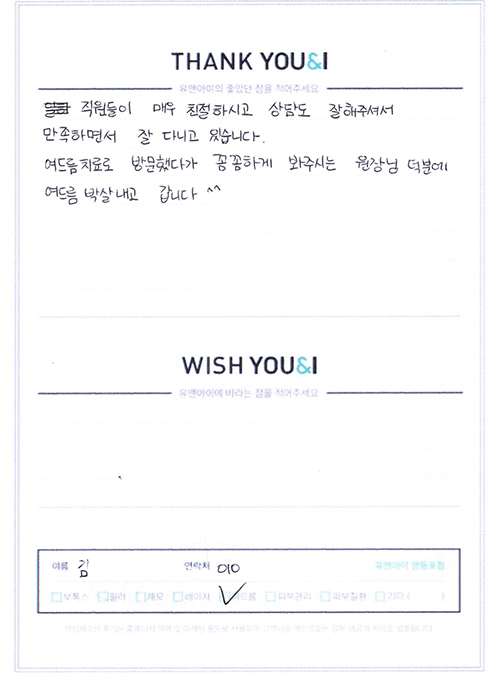 THANK YOU&I
유앤아이의 좋았던 점을 적어주세요
직원들이 매우 친절하시고 상담도 잘해주셔서
만족하면서 잘 다니고 있습니다.
여드름치료로 방문했다가 꼼꼼하게 봐주시는 원장님 덕분에
여드름 박살내고 갑니다 ^^
WISH YOU&I
유앤아이에 바라는 점을 적어주세요
이름 김 연락처 010 유앤아이 영등포점
보톡스 필러 제모 레이저 여드름 피부관리 피부질환 기타 ( )